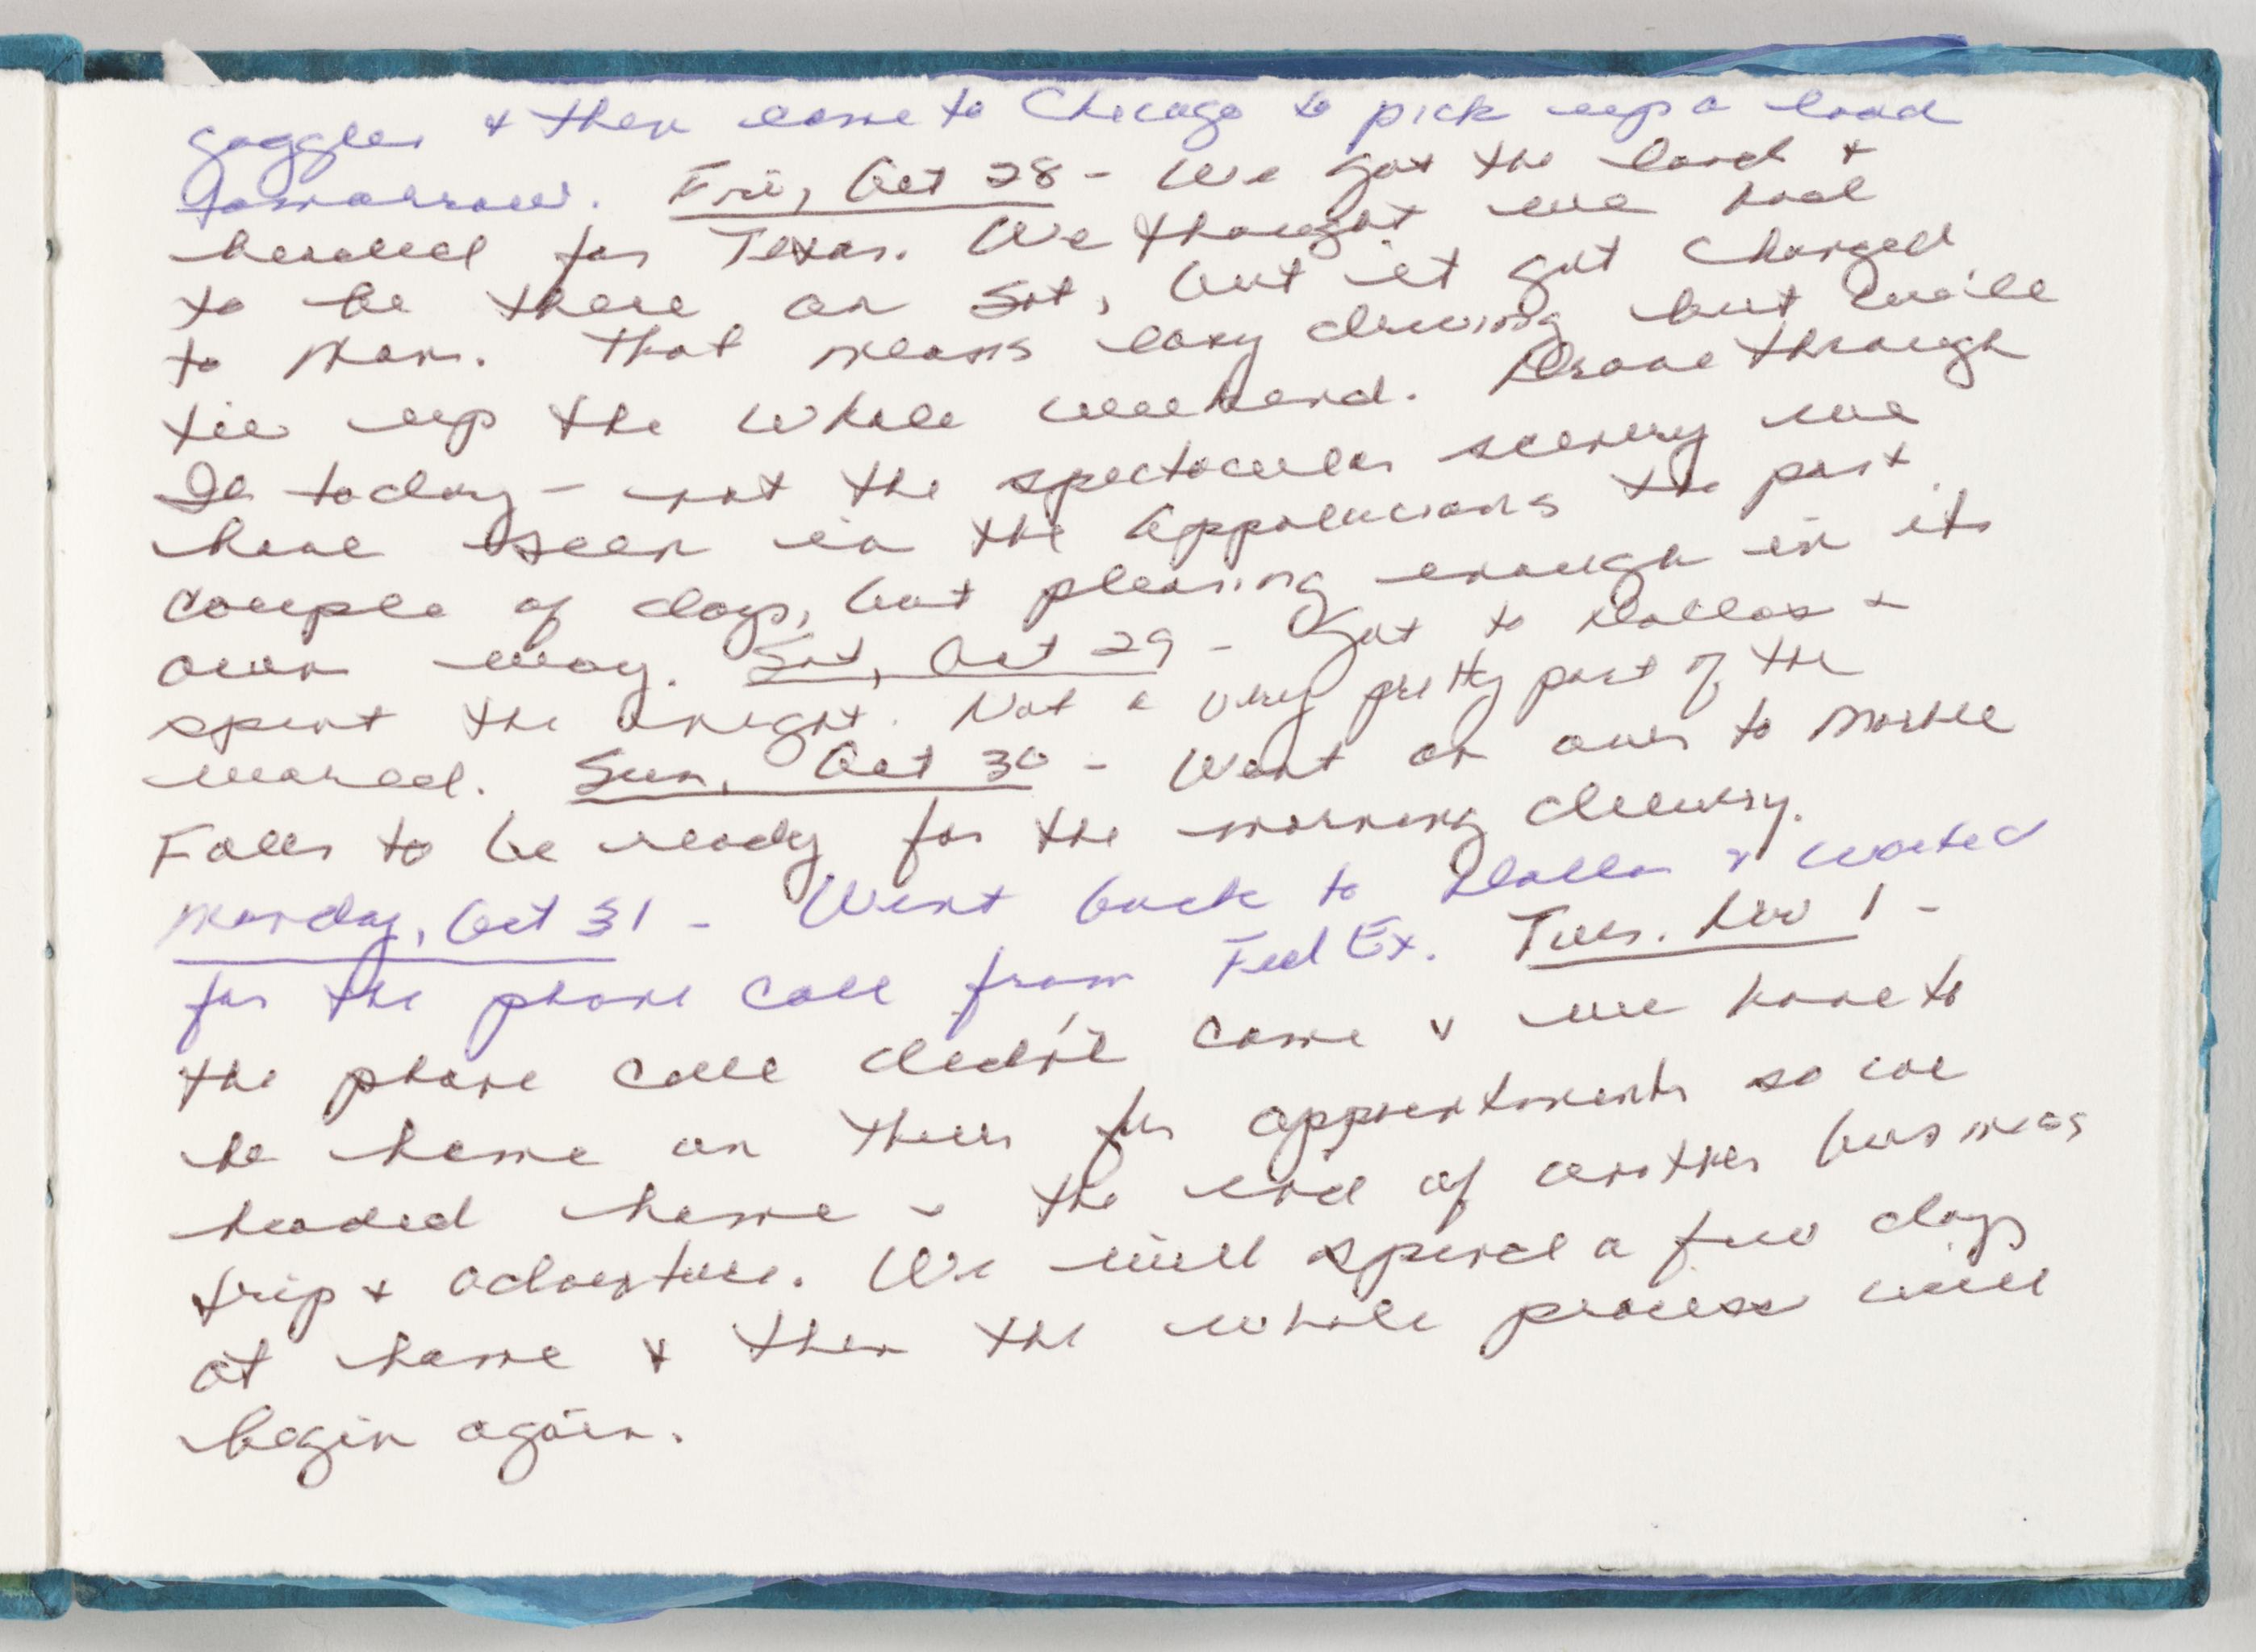 goggles & then came to Chicago to pick up a load
tomorrow. Fri, Oct 28 - We got the load &
headed for Texas. We thought we had
to be there on Sat, but it got changed
to Mon. That means easy driving but will
tie up the whole weekend. Drove through
Il today - not the spectacular scenery we
have seen in the Appalacians the past
couple of days, but pleasing enough in its
own way. Sat, Oct 29 - Got to Dallas &
spent the night. Not a very pretty part of the
world. Sun, Oct 30 - Went on over to Marble
Falls to be ready for the morning delivery.
Monday, Oct 31 - Went back to Dallas & waited
for the phone call from Fed Ex. Tues. Nov 1 -
the phone call didn't come & we have to
be home on Thurs for appointments so we
headed home - the end of another business
trip & adventure. We will spend a few days
at home & then the whole process will
begin again.